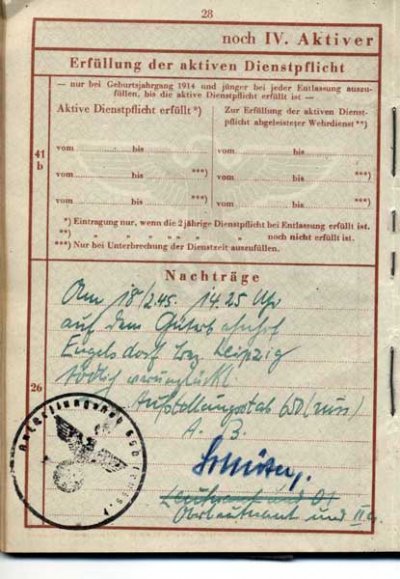 28
noch IV. Aktiver
Erfüllung der aktiven Dienstpflicht
— nur bei Geburtsjahrgang 1914 und jünger bei jeder Entlassung auszu-
füllen, bis die aktive Dienstpflicht erfüllt ist —
Aktive Dienstpflicht erfüllt*)
Zur Erfüllung der aktiven Dienst-
pflicht abgeleisteter Wehrdienst**)
41
b
vom bis
vom bis ***)
vom bis ***)
vom bis
vom bis ***)
vom bis ***)
*) Eintragung nur, wenn die 2jährige Dienstpflicht bei Entlassung erfüllt ist.
**) „ „ „ „ „ noch nicht erfüllt ist.
***) Nur bei Unterbrechung der Dienstzeit auszufüllen.
Nachträge
26
Am 18/2.45. 14.25 Uhr
auf dem Güterbahnhof
Engelsdorf bez. Leipzig
tödlich verunglückt
Aufstellungsstab 650 (russ)
A. B.
Leutnant und O1
Oberleutnant und